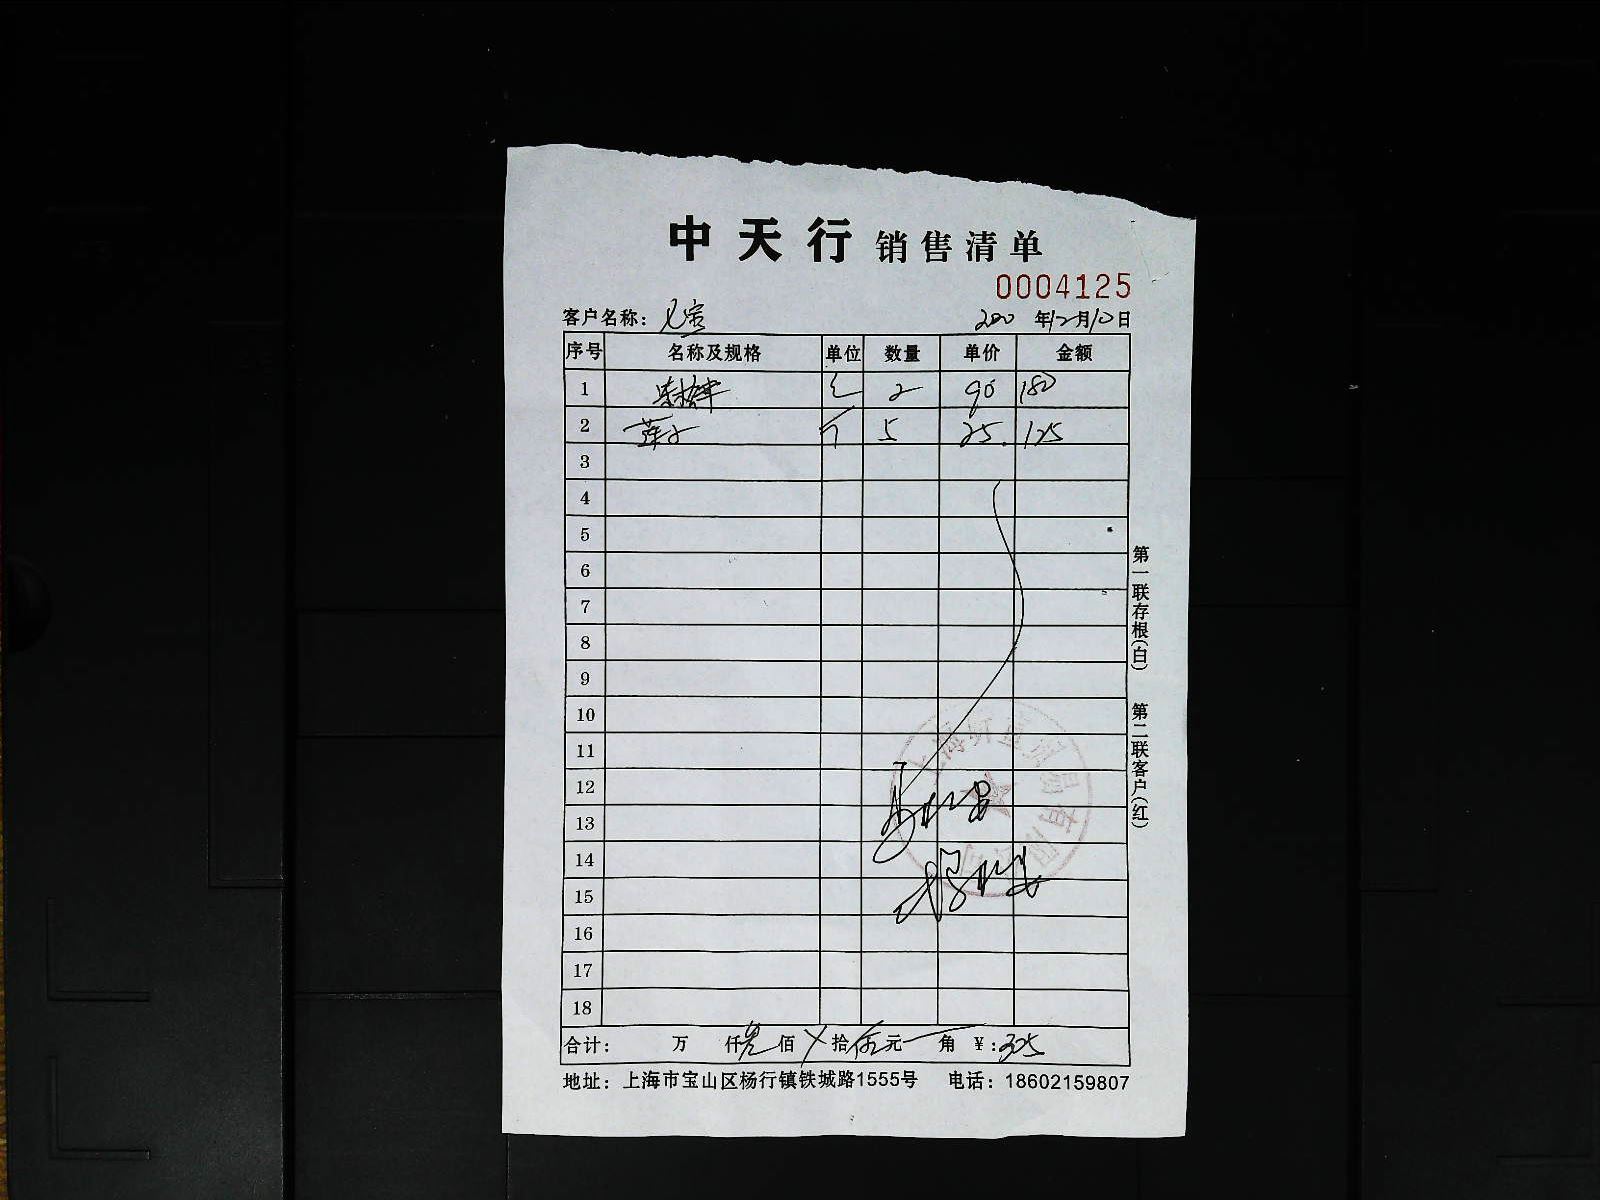 中天行 销售清单
0004125
客户名称：
年12月10日
序号 名称及规格 单位 数量 单价 金额
1 2 90 180
2 莲子 斤 5 25. 125
3
4
5
6
7
8
9
10
11
12
13
14
15
16
17
18
合计： 万 仟叁佰 拾伍元 角 ￥：305
地址：上海市宝山区杨行镇铁城路1555号 电话：18602159807
第一联存根(白) 第二联客户(红)